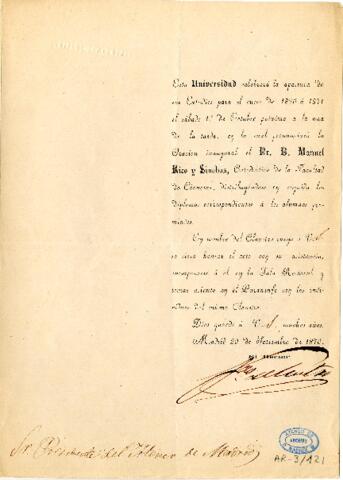 Esta Universidad celebrará la apertura de
sus Estudios para el curso de 1870 á 1871
el sábado 1.º de Octubre próximo á la una
de la tarde, en la cual pronunciará la
Oracion inaugural el Dr. D. Manuel
Rico y Sinobas, Catedrático de la Facultad
de Ciencias, distribuyéndose en seguida los
diplomas correspondientes á los alumnos pre-
miados.
En nombre del Claustro ruego á V.S.
se sirva honrar el acto con su asistencia,
incorporarse á él en la Sala Rectoral y
tomar asiento en el Paraninfo con los indi-
viduos del mismo Claustro.
Dios guarde á V.S. muchos años.
Madrid 20 de Setiembre de 1870.
El Rector
Sr. Presidente del Ateneo de Madrid
ATENEO DE
MADRID
AR-3/121